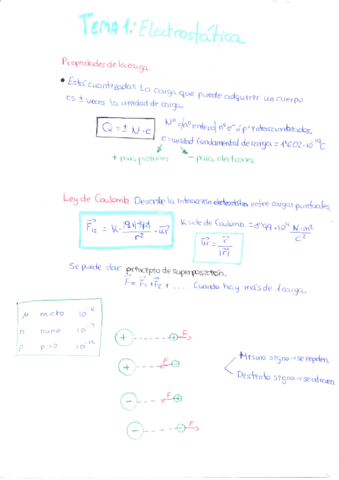 TEMA 1: Electrostática
Propiedades de la carga.
• Está cuantizada: La carga que puede adquirir un cuerpo
es ± veces la unidad de carga.
Q = ± N·e
Nº = (nº entero) nº e⁻ o p⁺ intercambiados.
e = unidad fundamental de carga = 1'602·10⁻¹⁹C
+ para protones
- para electrones
Ley de Coulomb. Describe la interacción electrostática entre cargas puntuales.
F₁₂ = K· |q₁|·|q₂| / r² · ur
K = cte de Coulomb = 8'99·10⁹ N·m² / C²
ur = r / |r|
Se puede dar principio de superposición.
F = F₁ + F₂ + ... Cuando hay más de 1 carga.
μ micro 10⁻⁶
n nano 10⁻⁹
p pico 10⁻¹²
+ + F
+ - F
- + F
- - F
Mismo signo → se repelen.
Distinto signo → se atraen.